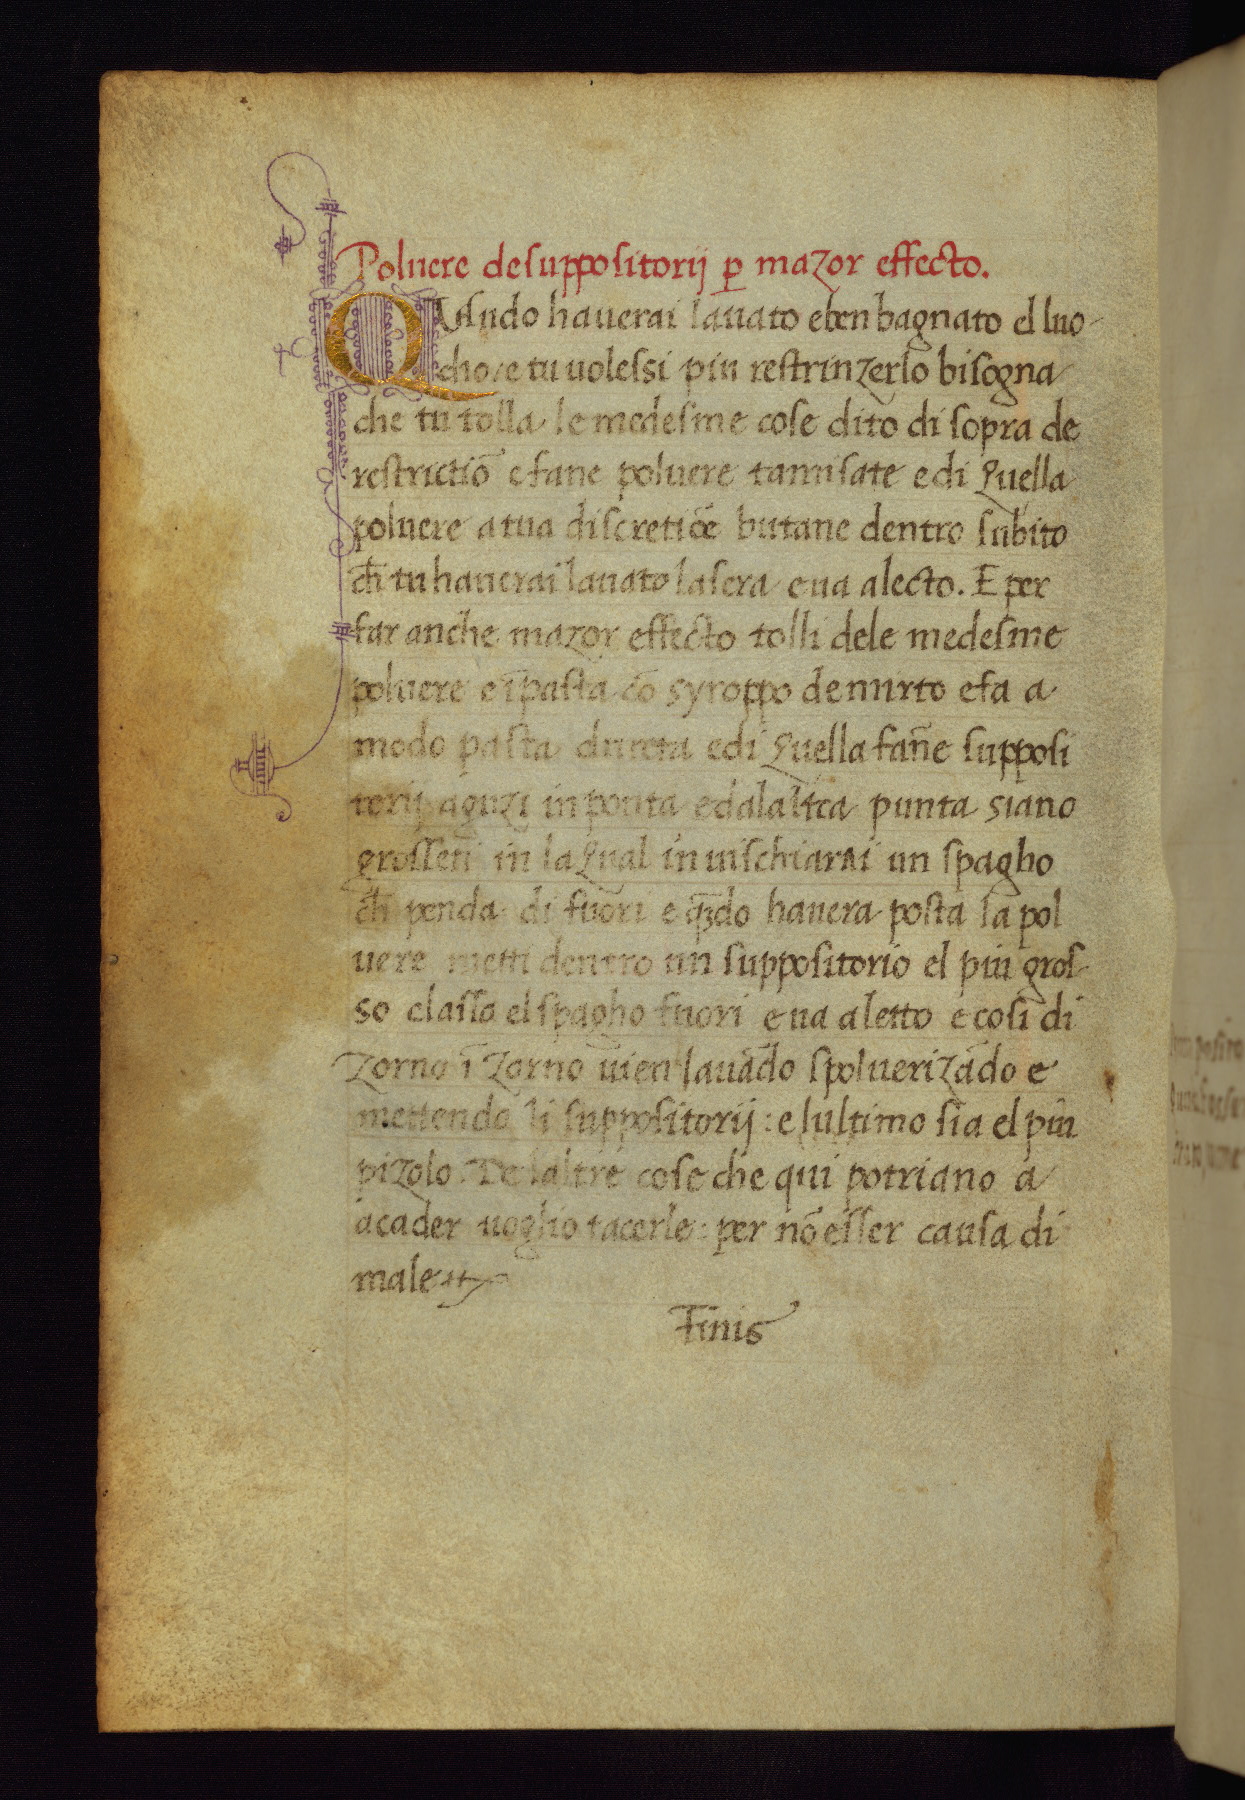 Poluere de suppositorij ꝑ mazor effecto.
QVando hauerai lauato e ben bagnato el luo
cho / e tu uolessi piu restrinzerlo bisogna
che tu tolla le medesme cose dito di sopra de
restrictiō e fane poluere tamisate e di Quella
poluere a tua discretiōe butane dentro subito
ch̄ tu hauerai lauato la sera e ua a lecto. E per
far anche mazor effecto tolli dele medesme
poluere e īpasta cō syroppo de mirto e fa a
modo pasta dureta e di Quella fan̄e supposi
torij aguzi in ponta e da laltra punta siano
grosseti in la Qual in uischiarai un spagho
ch̄ penda di fuori e qn̄do hauera posta la pol
uere metti dentro un suppositorio el piu gros-
so e lassa el spagho fuori e ua a letto e cosi di
zorno ī zorno uien lauādo spoluerizādo e
mettendo li suppositorij : e lultimo sia el piu
pizolo. De laltre cose che qui potriano a
acader uoglio tacerle : per nō esser causa di
male
Finis